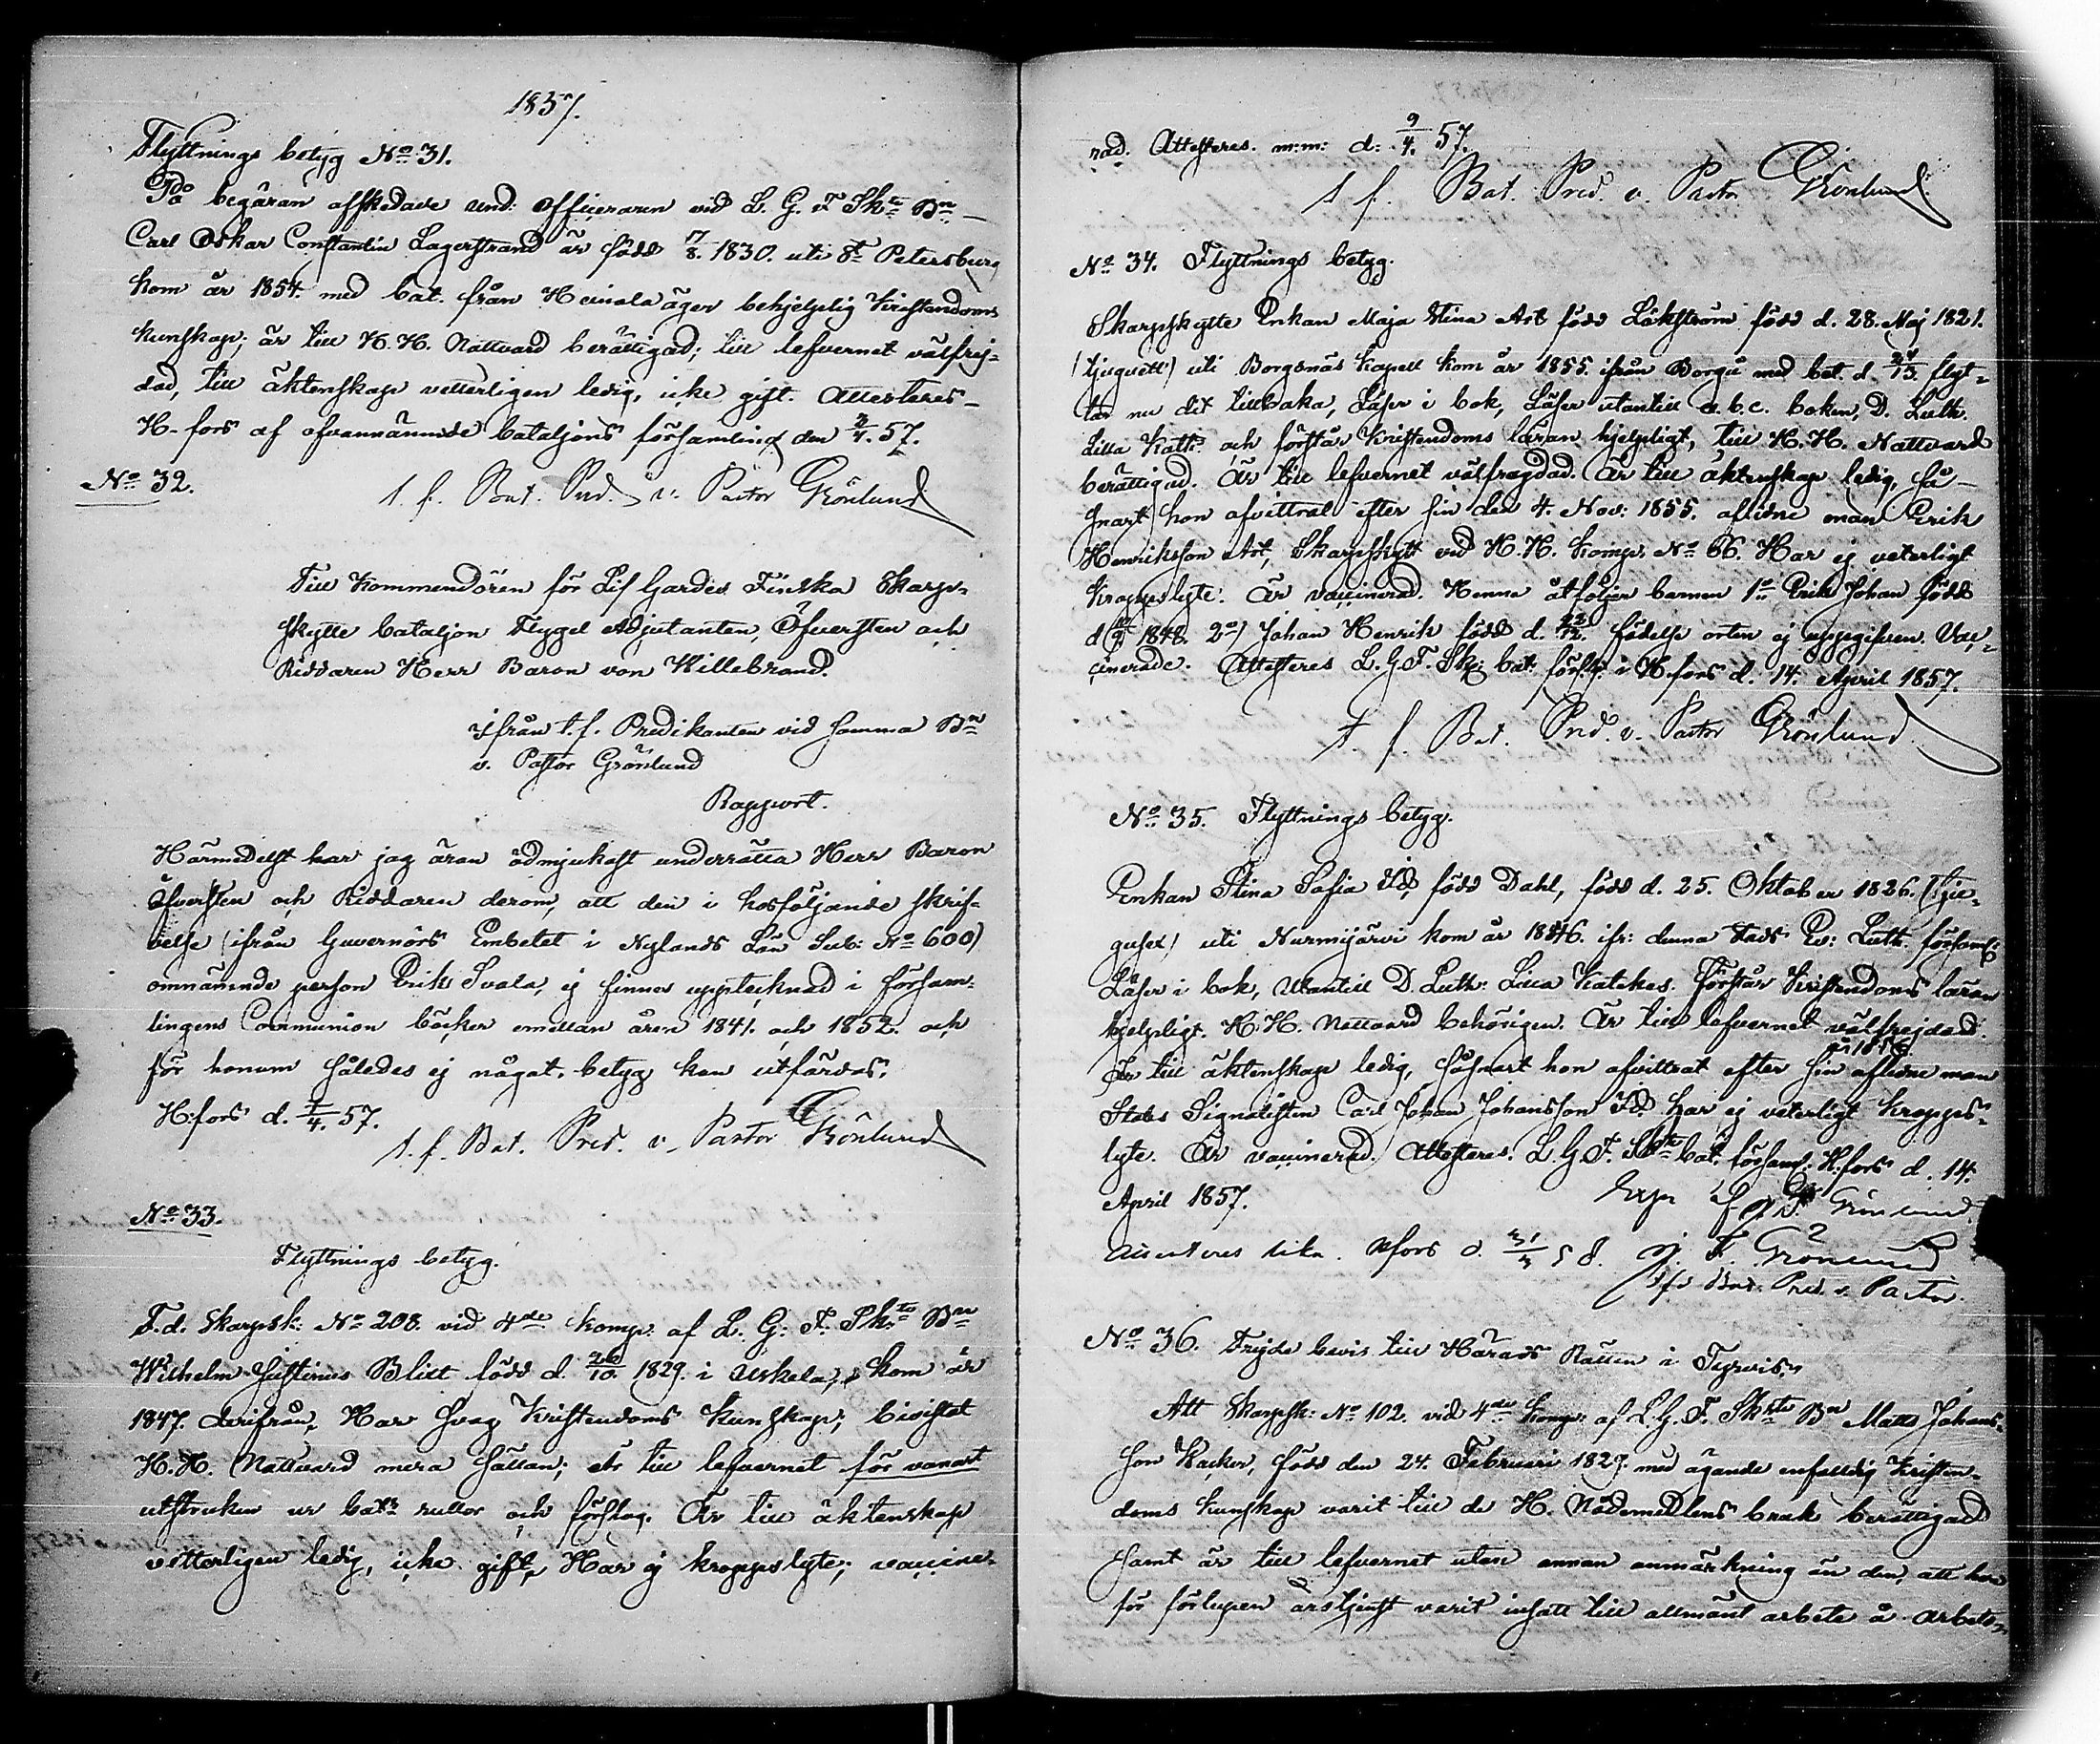 1857.
Flyttnings betyg No 31.
På begäran afskedade und: officeraren vid L. G. F Skte Bn
Carl Oskar Constantin Lagerstrand är född 17/8. 1830. uti St Petersburg
kom år 1854. med bat. från Heinola äger behjelplig Kristendoms
kunskap; är till H. H. Nattvard berättigad; till lefvernet välfrej-
dad, till äktenskap vetterligen ledig, icke gift. Attesteras
H-fors af ofvannämnde bataljons församling den /4. 57.
No 32.
t. f. Bat. Pred. v. Pastor Grönlund
Till Kommendören för Lif Gardes Finska Skarp-
skytte bataljon Flygel Adjutanten, Öfversten och
Riddaren Herr Baron von Willebrand.
ifrån t. f. Predikanten vid samma Bn
v. Pastor Grönlund
Rapport.
Härmedelst har jag äran ödmjukast underrätta Herr Baron
Öfversten och Riddaren derom, att den i hosföljande skrif-
velse (ifrån Guvernörs Embetet i Nylands Län Sub: No 600)
omnämnde person Erik Svala, ej finnes upptecknad i försam-
lingens Communion böcker emellan åren 1841. och 1852. och
för honom således ej något betyg kan utfärdas.
H:fors d. /4. 57.
t. f. Bat. Pred. v. Pastor Grönlund
No 33.
Flyttnings betyg.
F. d. Skarpsk: No 208. vid 4de komp: af L. G: F. Skte Bn
Wilhelm Justinus Blixt född d. 26/10. 1829. i Uskela, kom år
1847. derifrån, Har svag Kristendoms kunskap; bivistat
H. H. Nattvard mera sällan; är till lefvernet för vanart
utstruken ur bats rullor och förslag. Är till äktenskap
vetterligen ledig, icke gift, Har ej kroppslyte; vaccine-
rad. Attesteras. m:m: d: 9/4. 57.
t. f. Bat. Pred. v. Pastor Grönlund
No 34. Flyttnings betyg.
Skarpskytte Enkan Maja Stina Ast född Läkström född d. 28. Maj 1821.
(tjuguett) uti Borgsnäs kapell kom år 1855. ifrån Borgå med bet. d. flyt-
tar nu dit tillbaka, Läser i bok, Läser utantill a. b. c. boken, D. Luth.
Lilla Kath. och förstår Kristendoms läran hjelpligt, till H. H. Nattvard
berättigad. Är till lefvernet välfrägdad. Är till äktenskap ledig, så-
snart hon afvittrat efter sin den 4. Nov: 1855. aflidne man Erik
Henriksson Ast, Skarpskytt vid H. H. komp. No 66. Har ej veterligt
kroppslyte. Är vaccinerad. Henne åtföljer barnen 1o Erik Johan född
d /9 1848. 2o) Johan Henrik född d. 22/12. födelse orten ej uppgifven. Vac-
cinerade. Attesteras L. G. F. Sk: bat: förs:g: i H.fors d. 14. April 1857.
T. f. Bat. Pred. v. Pastor Grönlund
No 35. Flyttnings betyg.
Enkan Stina Sofia Id, född Dahl, född d. 25. Oktober 1826. (tju-
gusex) uti Nurmijärvi kom år 1846. ifr: denna stads Ev: Luth. församl:
Läser i bok, utantill D. Luth: Lilla Katekes. Förstår Kristendoms läran
hjelpligt. H. H. Nattvard behörigen. Är till lefvernet välfrejdad.
år 1856.
Är till äktenskap ledig, såsnart hon afvittrat efter sin aflidne man
Stabs Signalisten Carl Johan Johansson Id, har ej veterligt kropps-
lyte. Är vaccinerad. Attesteras. L. G. F. Skte bat. församl. H:fors d. 14.
April 1857.
Grönlund
H.fors d. 58. Grönlund
tfd Bat. Pred. v. Pastor.
No 36. Frejde bevis till Härads Rätten i Tyrvis.
Att Skarpsk: No 102. vid 4de Komp: af L. G. F. Skte Bn Matts Johans-
son Wacker, född den 24. Februari 1829. med ägande enfalldig Kristen-
doms kunskap varit till de H. Nådemedlens bruk berättigad
samt är till lefvernet utan annan anmärkning än den, att han
för förlupen årstjenst varit insatt till allmänt arbete å arbets-